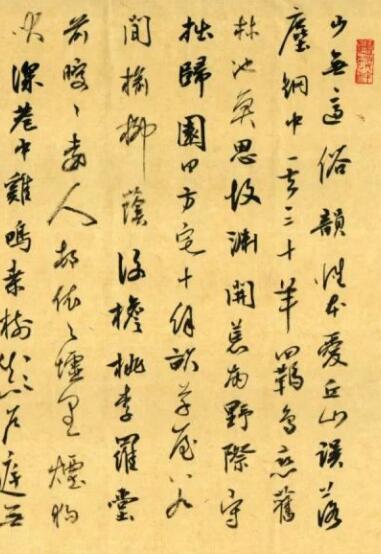 少無適俗韻性本愛丘山誤落
塵網中一去三十年羈鳥戀舊
林池魚思故淵開荒南野際守
拙歸園田方宅十餘畝草屋八九
間榆柳蔭後檐桃李羅堂
前曖〻遠人邨依〻墟里煙狗
吠深巷中雞鳴桑樹顛戶庭無